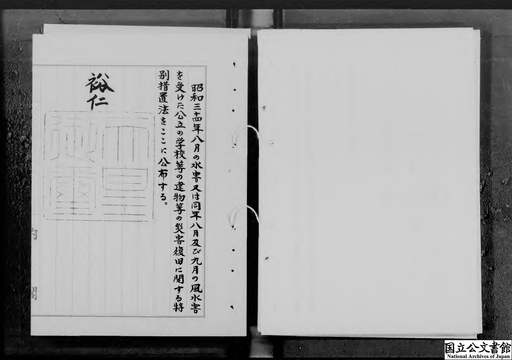 昭和三十四年八月の水害又は同年八月及び九月の風水害
を受けた公立の学校等の建物等の災害復旧に関する特
別措置法をここに公布する。
裕仁
内
閣
国立公文書館
National Archives of Japan